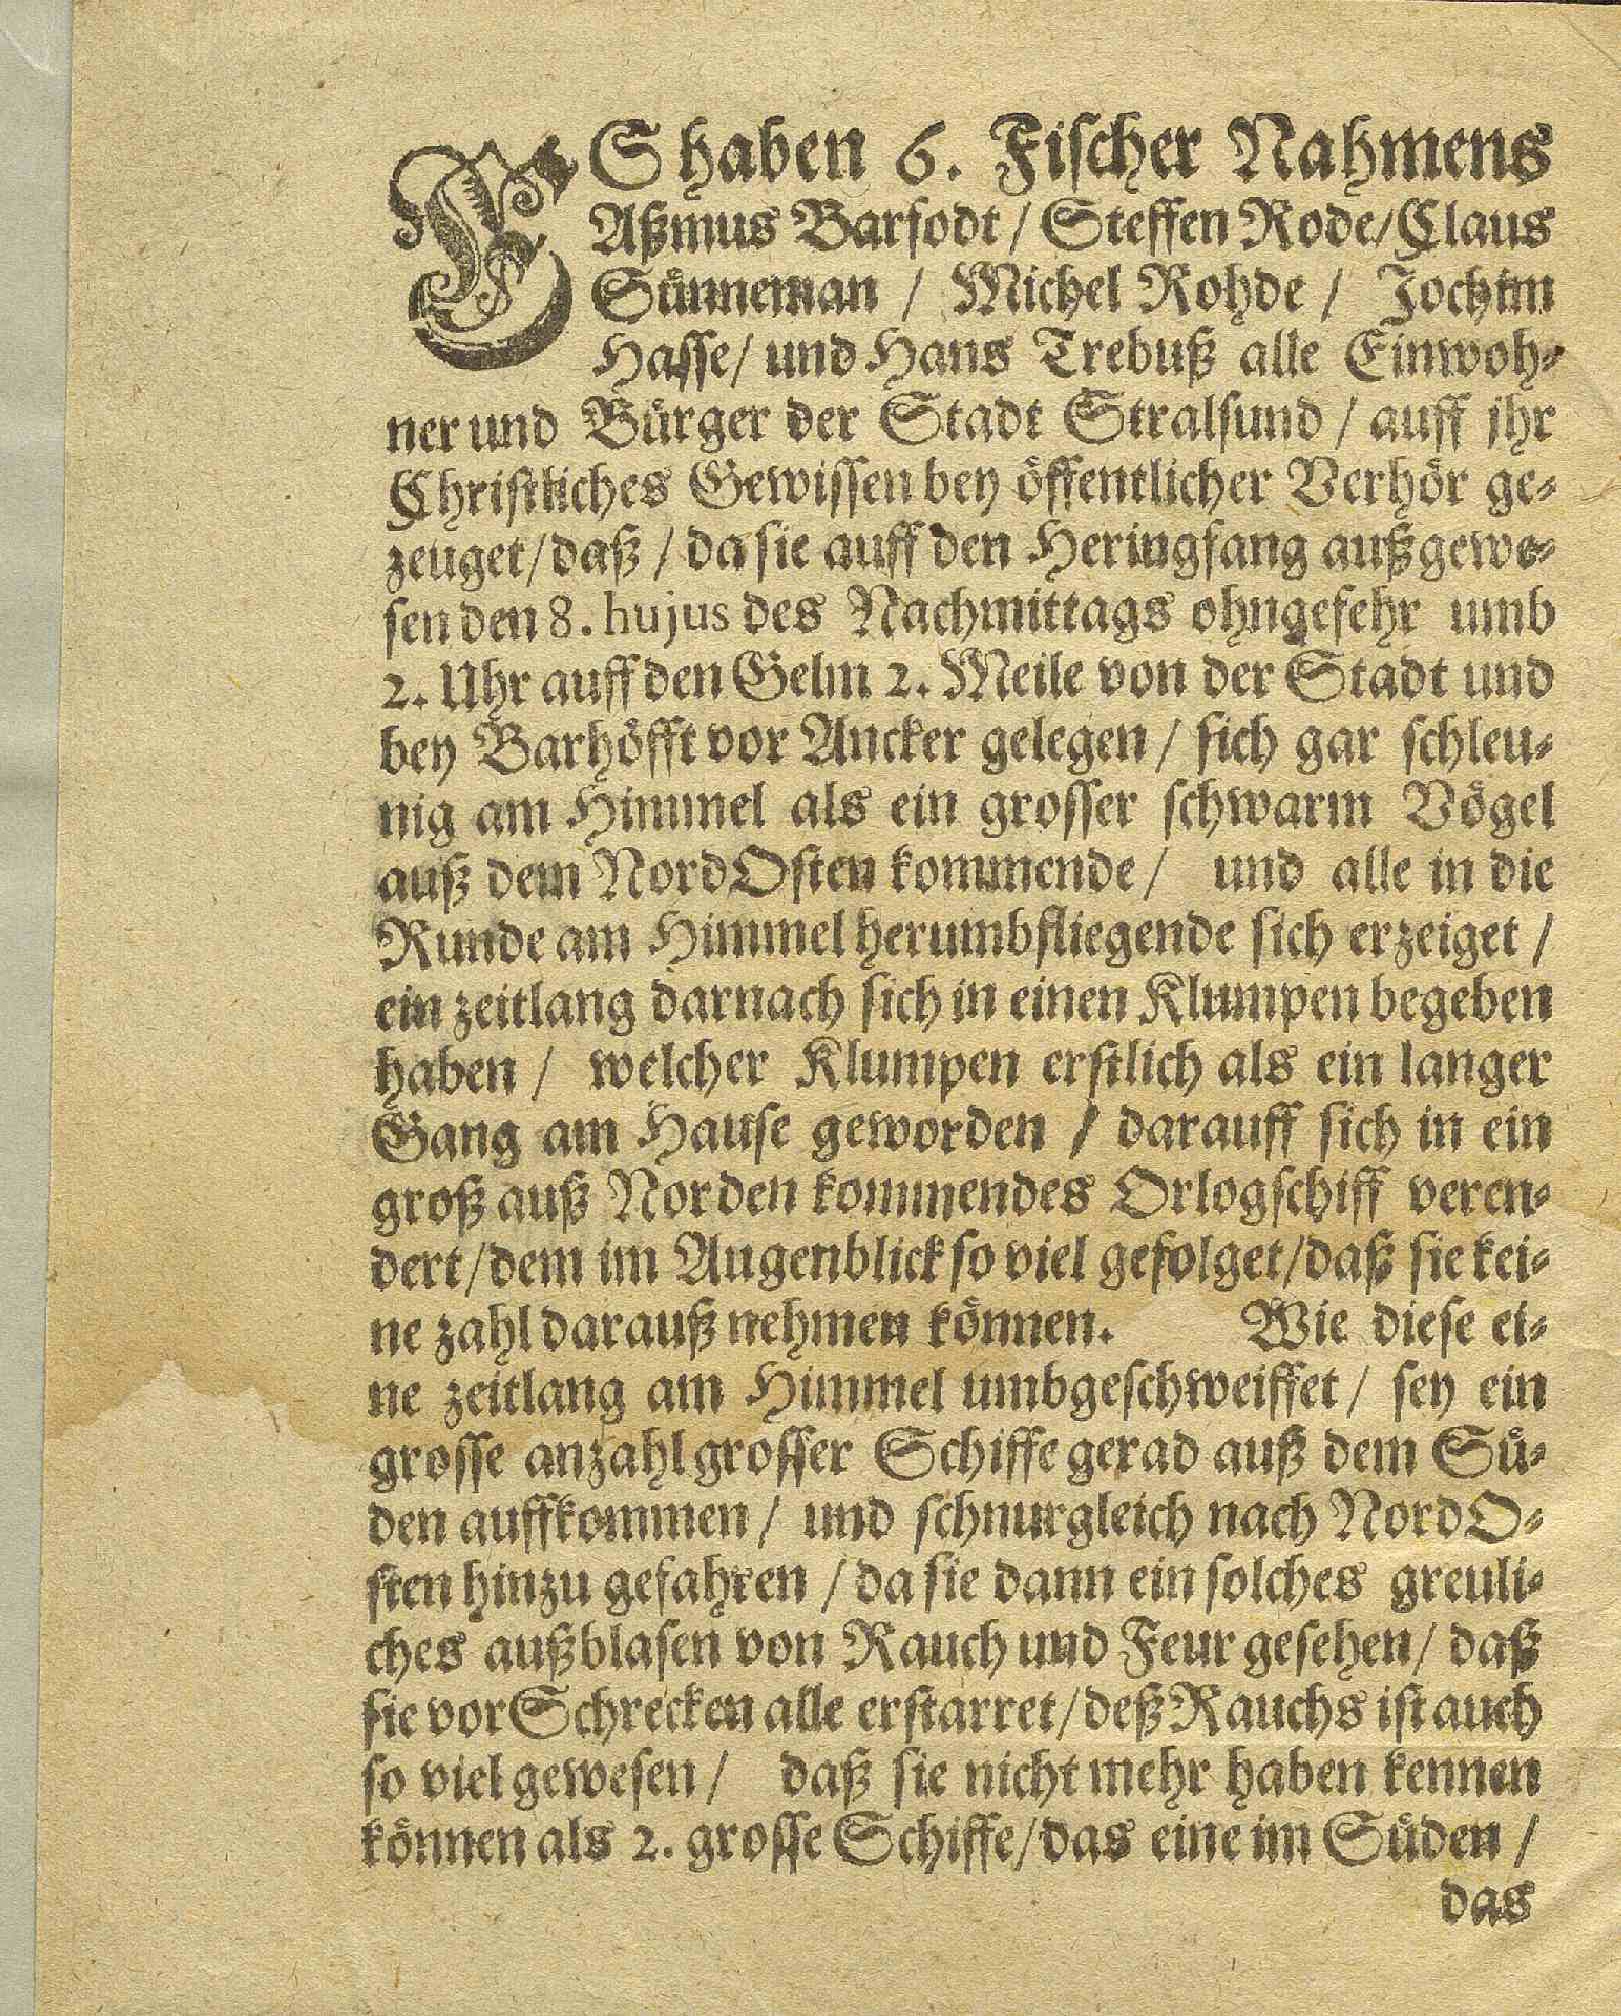 ES haben 6. Fischer Nahmens
Aßmus Barfodt / Steffen Rode / Claus
Sünneman / Michel Rohde / Jochim
Hasse / und Hans Trebuß alle Einwoh-
ner und Bürger der Stadt Stralsund / auff jhr
Christliches Gewissen bey öffentlicher Verhör ge-
zeuget / daß / da sie auff den Heringfang außgewe-
sen den 8. hujus des Nachmittags ohngefehr umb
2. Uhr auff den Gelm 2. Meile von der Stadt und
bey Barhöfft vor Ancker gelegen / sich gar schleu-
nig am Himmel als ein grosser schwarm Vögel
auß dem NordOsten kommende / und alle in die
Runde am Himmel herumbfliegende sich erzeiget /
ein zeitlang darnach sich in einen Klumpen begeben
haben / welcher Klumpen erstlich als ein langer
Gang am Hause geworden / darauff sich in ein
groß auß Norden kommendes Orlogschiff veren-
dert / dem im Augenblick so viel gefolget / daß sie kei-
ne zahl darauß nehmen können. Wie diese ei-
ne zeitlang am Himmel umbgeschweiffet / sey ein
grosse anzahl grosser Schiffe gerad auß dem Sü-
den auffkommen / und schnurgleich nach NordO-
sten hinzu gefahren / da sie dann ein solches greuli-
ches außblasen von Rauch und Feur gesehen / daß
sie vor Schrecken alle erstarret / deß Rauchs ist auch
so viel gewesen / daß sie nicht mehr haben kennen
können als 2. grosse Schiffe / das eine im Süden /
das